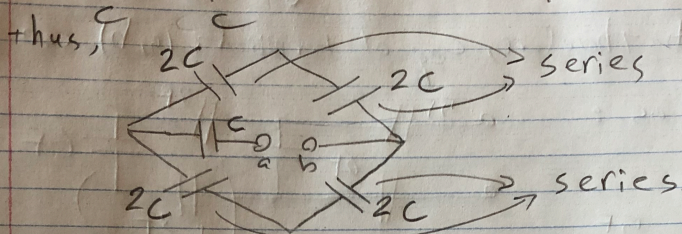 C C
thus,
2C 2C series
C
a b
2C 2C series